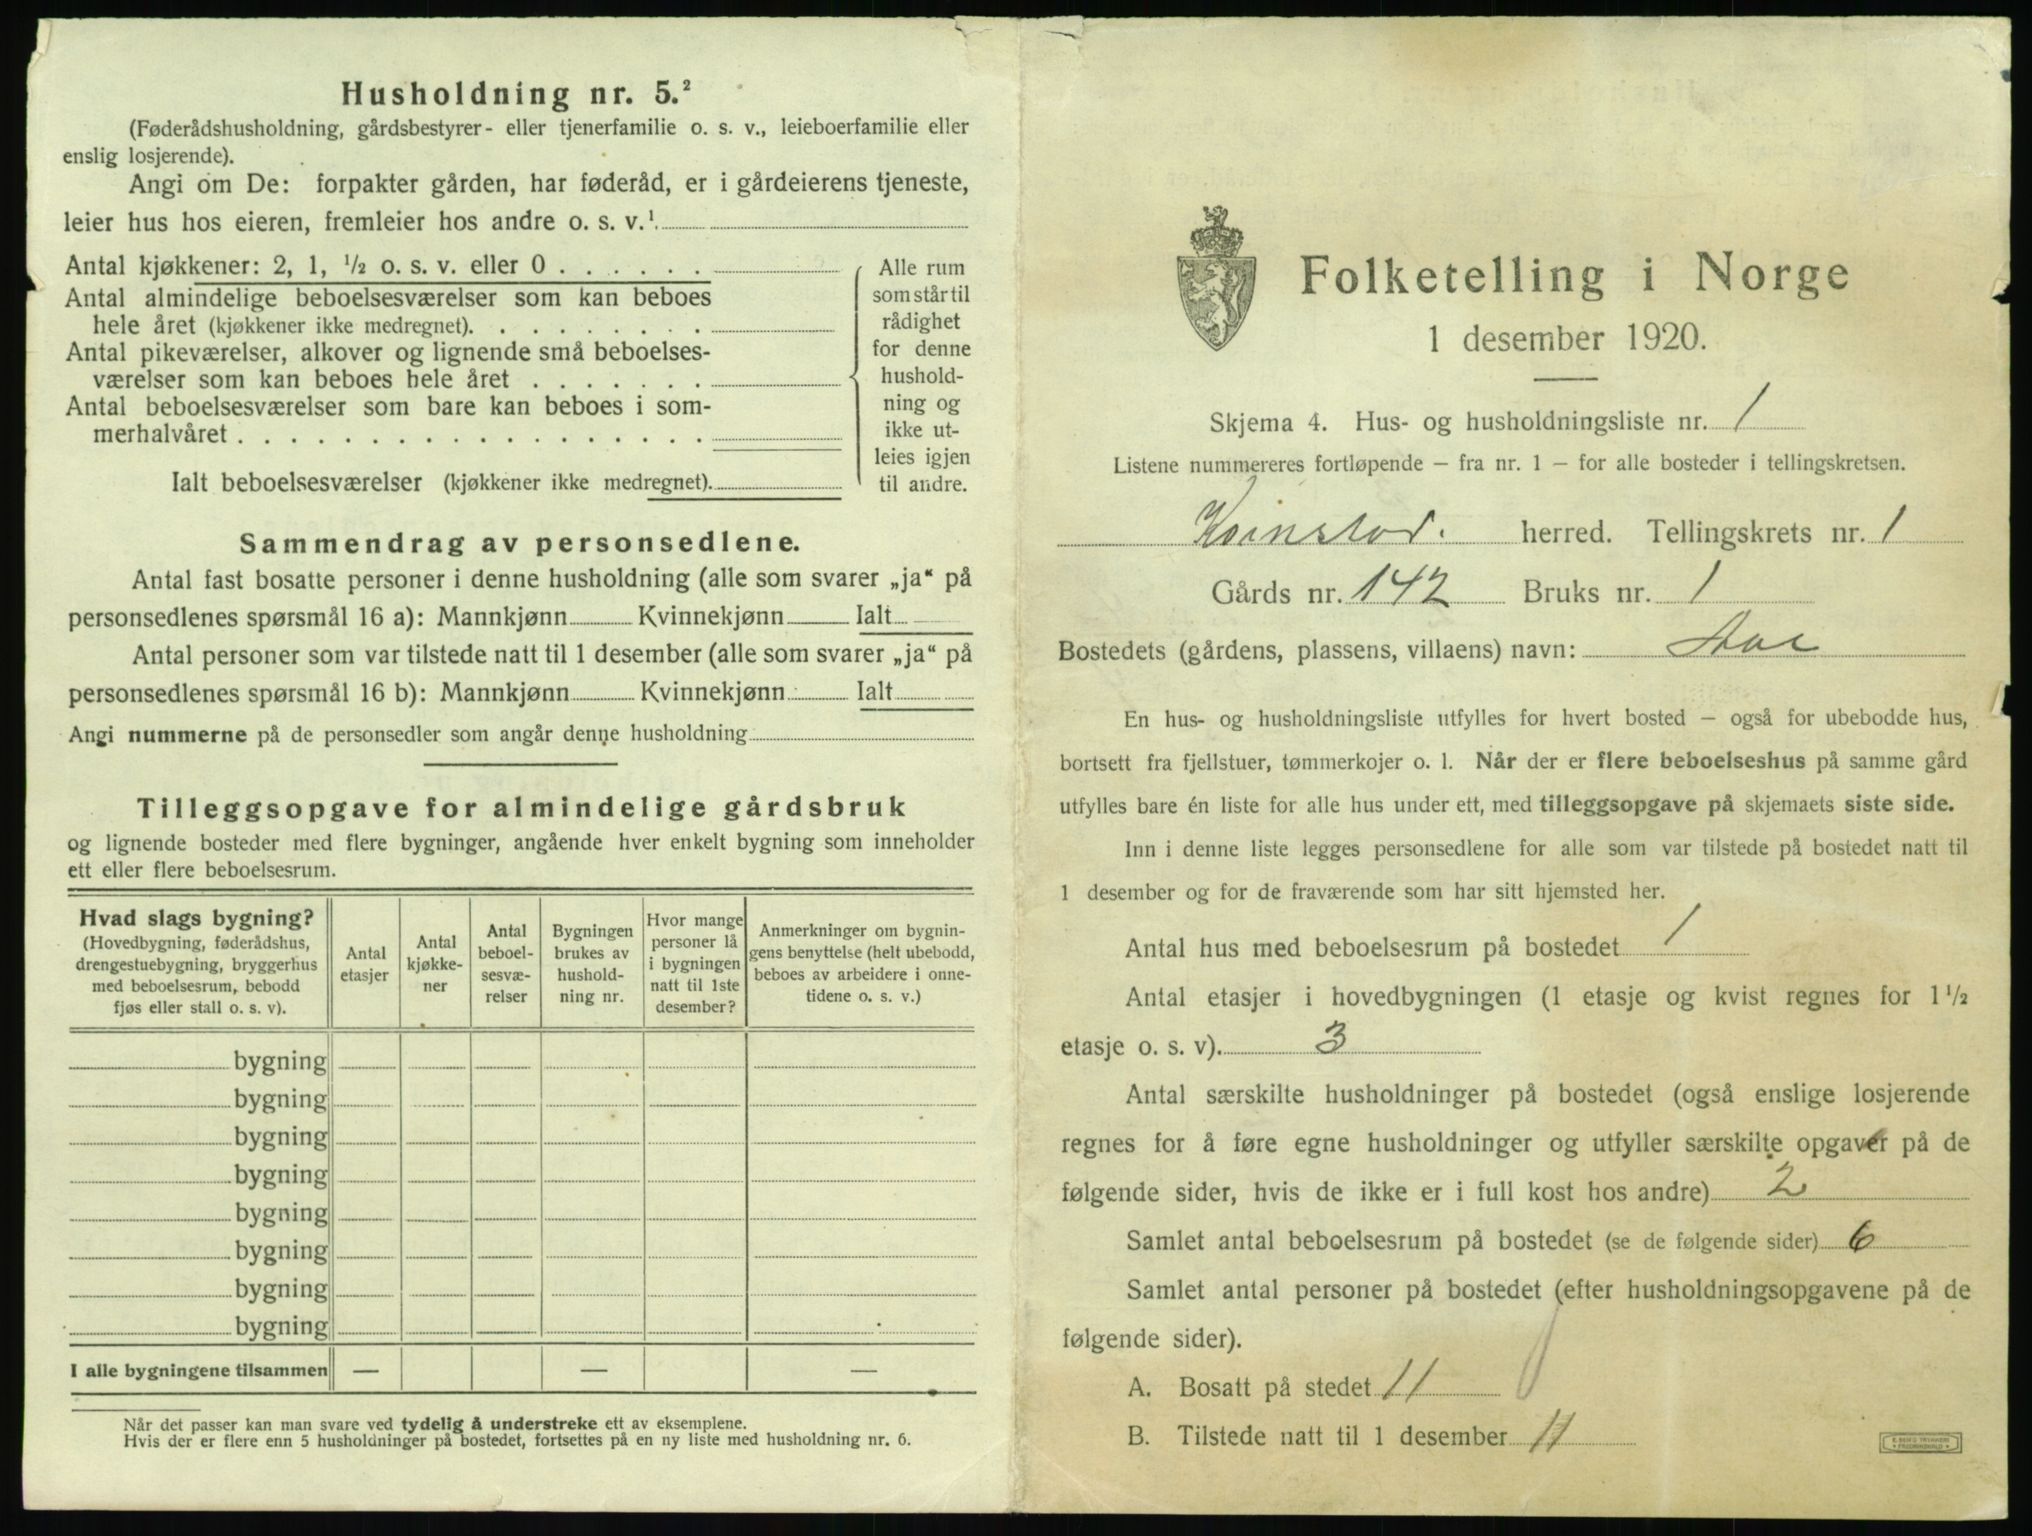 Husholdning nr. 5.²
(Føderådshusholdning, gårdsbestyrer- eller tjenerfamilie o. s. v., leieboerfamilie eller
enslig losjerende).
Angi om De: forpakter gården, har føderåd, er i gårdeierens tjeneste,
leier hus hos eieren, fremleier hos andre o. s. v.¹
Antal kjøkkener: 2, 1, ½ o. s. v. eller 0 . . . . . .
Antal almindelige beboelsesværelser som kan beboes
hele året (kjøkkener ikke medregnet). . . . . . . . .
Antal pikeværelser, alkover og lignende små beboelses-
værelser som kan beboes hele året . . . . . . .
Antal beboelsesværelser som bare kan beboes i som-
merhalvåret . . . . . . . . . . . . . . . . . .
Ialt beboelsesværelser (kjøkkener ikke medregnet).
Alle rum
som står til
rådighet
for denne
hushold-
ning og
ikke ut-
leies igjen
til andre.
Sammendrag av personsedlene.
Antal fast bosatte personer i denne husholdning (alle som svarer „ja“ på
personsedlenes spørsmål 16 a): Mannkjønn Kvinnekjønn Ialt
Antal personer som var tilstede natt til 1 desember (alle som svarer „ja“ på
personsedlenes spørsmål 16 b): Mannkjønn Kvinnekjønn Ialt
Angi nummerne på de personsedler som angår denne husholdning
Tilleggsopgave for almindelige gårdsbruk
og lignende bosteder med flere bygninger, angående hver enkelt bygning som inneholder
ett eller flere beboelsesrum.
Hvad slags bygning?
(Hovedbygning, føderådshus,
drengestuebygning, bryggerhus
med beboelsesrum, bebodd
fjøs eller stall o. s. v).
Antal
etasjer
Antal
kjøkke-
ner
Antal
beboel-
sesvæ-
relser
Bygningen
brukes av
hushold-
ning nr.
Hvor mange
personer lå
i bygningen
natt til 1ste
desember?
Anmerkninger om bygnin-
gens benyttelse (helt ubebodd,
beboes av arbeidere i onne-
tidene o. s. v.)
bygning
bygning
bygning
bygning
bygning
bygning
bygning
bygning
I alle bygningene tilsammen — — —
Når det passer kan man svare ved tydelig å understreke ett av eksemplene.
Hvis der er flere enn 5 husholdninger på bostedet, fortsettes på en ny liste med husholdning nr. 6.
Folketelling i Norge
1 desember 1920.
Skjema 4. Hus- og husholdningsliste nr. 1
Listene nummereres fortløpende – fra nr. 1 – for alle bosteder i tellingskretsen.
herred. Tellingskrets nr. 1
Gårds nr. 142 Bruks nr. 1
Bostedets (gårdens, plassens, villaens) navn:
En hus- og husholdningsliste utfylles for hvert bosted – også for ubebodde hus,
bortsett fra fjellstuer, tømmerkojer o. l. Når der er flere beboelseshus på samme gård
utfylles bare én liste for alle hus under ett, med tilleggsopgave på skjemaets siste side.
Inn i denne liste legges personsedlene for alle som var tilstede på bostedet natt til
1 desember og for de fraværende som har sitt hjemsted her.
Antal hus med beboelsesrum på bostedet 1
Antal etasjer i hovedbygningen (1 etasje og kvist regnes for 1½
etasje o. s. v). 3
Antal særskilte husholdninger på bostedet (også enslige losjerende
regnes for å føre egne husholdninger og utfyller særskilte opgaver på de
følgende sider, hvis de ikke er i full kost hos andre) 2
Samlet antal beboelsesrum på bostedet (se de følgende sider) 6
Samlet antal personer på bostedet (efter husholdningsopgavene på de
følgende sider).
A. Bosatt på stedet 11
B. Tilstede natt til 1 desember 11